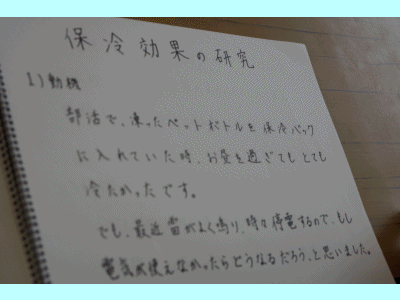 保冷効果の研究
1)動機
部活で、凍ったペットボトルを保冷バック
に入れていた時、お昼を過ぎてもとても
冷たかったです。
でも、最近雷がよく鳴り、時々停電するので、もし
電気が使えなかったらどうなるだろう、と思いました。